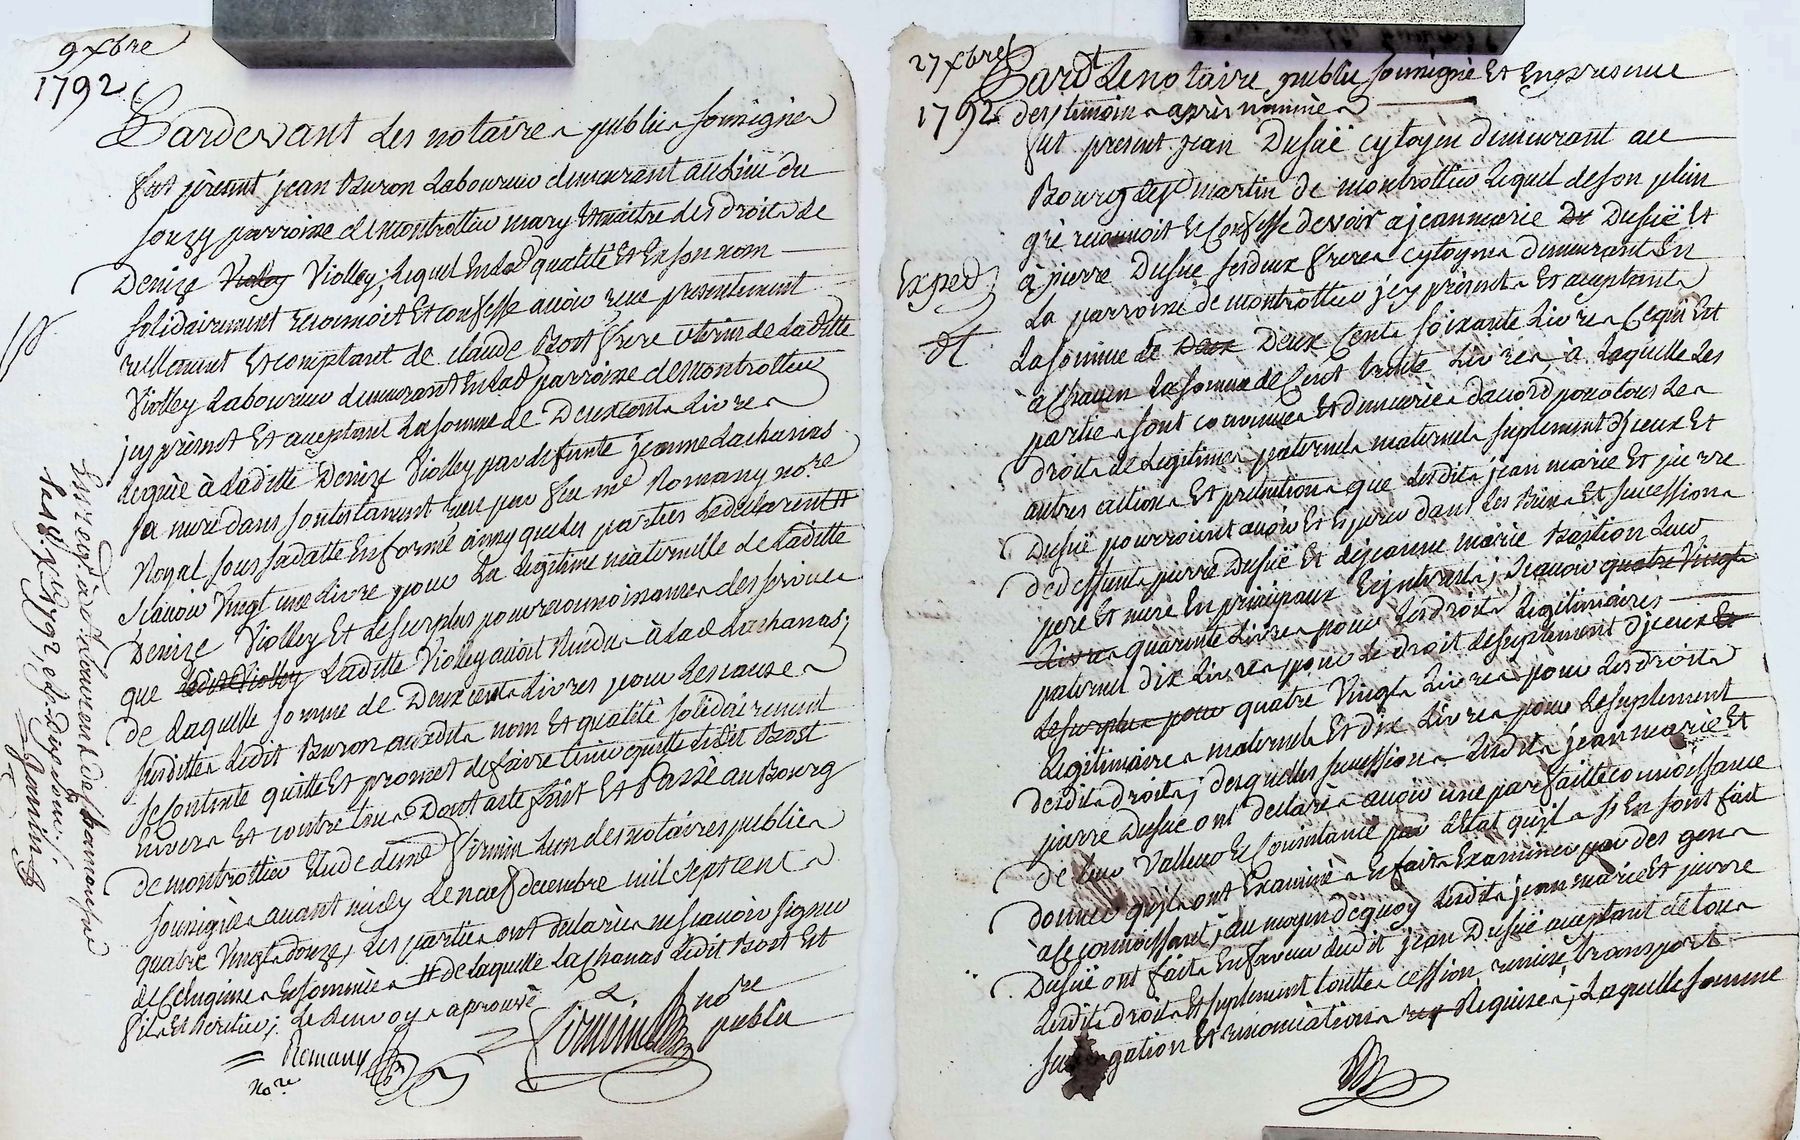 9 xbre
1792
Pardevant Les notaires publics soussignés
fut présent jean Buron Laboureur demeurant au Lieu du
souzy parroisse de montrottier mary Et maitre des droits de
Denize Violley Violley, Lequel En Lad qualité Et En son nom
solidairement reconnoit Et confesse avoir reçu presentement
reellement Et comptant de claude Bost frere uterin de Laditte
Violley Laboureur demeurant En Lad parroisse de montrottier
jcy présent Et aceptant La somme de Deux cents Livres
Leguée à Laditte Denize Violley par defunte jeanne Lachanas
sa mere dans son testament reçu par feu me Romany nore
Royal sous sa datte En forme ainsy que les parties Le déclarent #
scavoir Vingt une Livre pour La Legitime maternelle de Laditte
Denize Violley Et Le surplus pour reconnoissance des services
que Ledit Violley Laditte Violley avoit Rendus à Lad Lachanas;
de Laquelle somme de Deux cents Livres pour Les causes
susdittes Ledit Buron auxdits nom Et qualité solidairement
se contente quitte Et promet de faire tenir quitte Ledit Bost
Envers Et contre tous Dont acte fait Et Passé au Bourg
de montrottier Etude de me firmin L'un des notaires publics
soussignés avant midy Le neuf decembre mil sept cents
quatre Vingts douze, Les parties ont declarés ne scavoir signer
de ce Enquises Et sommées # de Laquelle La chanas Ledit Bost Est
fils Et heritier; Le Renvoy approuvé
Romany
Nore
firmin nore
public
Enregistré à
1792
27 xbre
1792
Pardt Le notaire public soussigné Et En presence
des témoins après nommés
fut présent jean Dussuë cytoyen demeurant au
Bourg de st martin de montrottier Lequel de son plein
gré reconnoit Et confesse devoir a jean marie De Dussuë Et
à pierre Dussuë ses deux freres cytoyens demeurants En
La parroisse de montrottier jcy présents Et aceptants
La somme de Deux Deux Cents soixante Livres Ce qui Est
à chacun La somme de Cent trente Livres, à Laquelle Les
parties sont convenues Et demeurées d'acord pour tous Les
droits de Legitimes paternels maternels suplement d'jceux Et
autres actions Et pretentions que Lesdits jean marie Et pierre
Dussuë pourroient avoir Et Esperer dans Les Biens Et successions
de deffunts pierre Dussuë Et de jeanne marie Bastion Leur
pere Et mere En principaux Et jnterets, scavoir quatre Vingt
Livres quarante Livres pour Les droits Legitimaires
paternel dix Livres pour Le droit de suplement d'jceux Et
Le surplus pour quatre Vingts Livres pour Les droits
Legitimaires maternels Et dix Livres pour Le suplement
desdits droits; desquelles successions Lesdits jean marie Et
pierre Dussuë ont declarés avoir une parfaitte connoissance
de Leur Valleur Et Consistance par L'état qu'jls s'En sont fait
donner qu'jls ont Examinés Et faits Examiner par des gens
à ce connoissant; au moyen de quoy Lesdits jean marie Et pierre
Dussuë ont faits En faveur dudit jean Dussuë aceptant de tous
Lesdits droits Et suplement touttes cession remise transport
subrogation Et renonciations req Requises; Laquelle somme
Exped